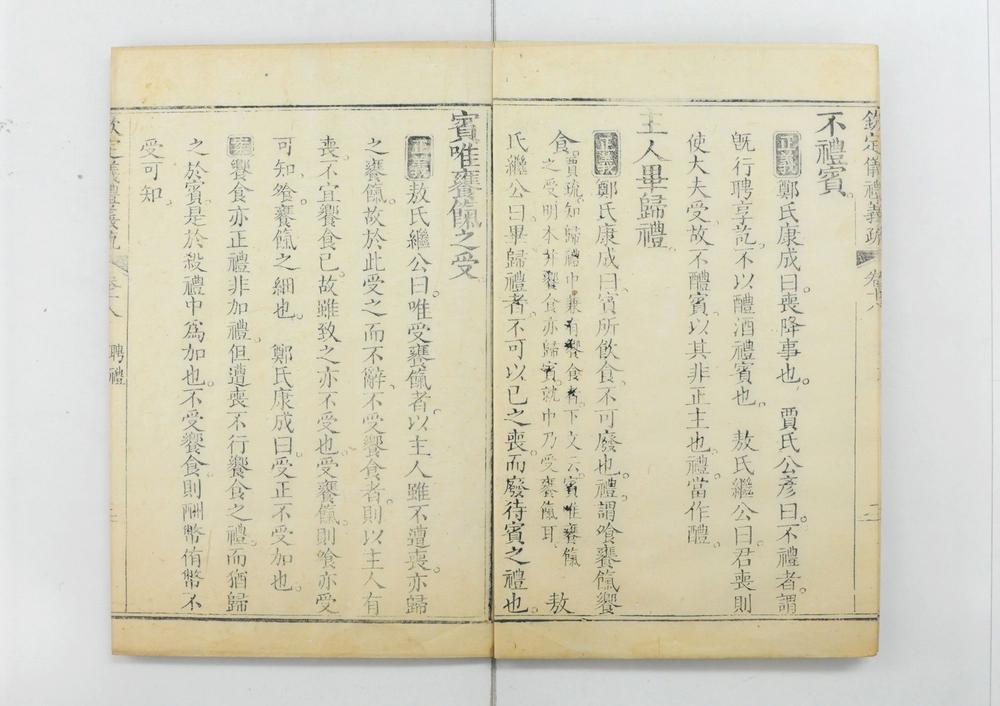 欽定儀禮義疏 卷十八 二
不禮賓
正義 鄭氏康成曰。喪降事也。 賈氏公彥曰。不禮者。謂
既行聘享訖。不以醴酒禮賓也。 敖氏繼公曰。君喪則
使大夫受。故不醴賓。以其非正主也。禮當作醴。
主人畢歸禮
正義 鄭氏康成曰。賓所飲食。不可廢也。禮。謂飧饔餼饗
食。賈疏。知歸禮中兼有饗食者。下文云。賓唯饔餼
之受。明本并饗食亦歸賓。就中乃受饔餼耳。 敖
氏繼公曰。畢歸禮者。不可以已之喪。而廢待賓之禮也。
賓唯饔餼之受
正義 敖氏繼公曰。唯受饔餼者。以主人雖不遭喪。亦歸
之饔餼。故於此受之而不辭。不受饗食者。則以主人有
喪。不宜饗食已。故雖致之亦不受也。受饔餼。則飧亦受
可知。飧。饔餼之細也。 鄭氏康成曰。受正不受加也。
案 饗食亦正禮。非加禮。但遭喪不行饗食之禮。而猶歸
之於賓。是於殺禮中爲加也。不受饗食。則酬幣侑幣不
受可知。
欽定儀禮義疏 卷十八 聘禮 二